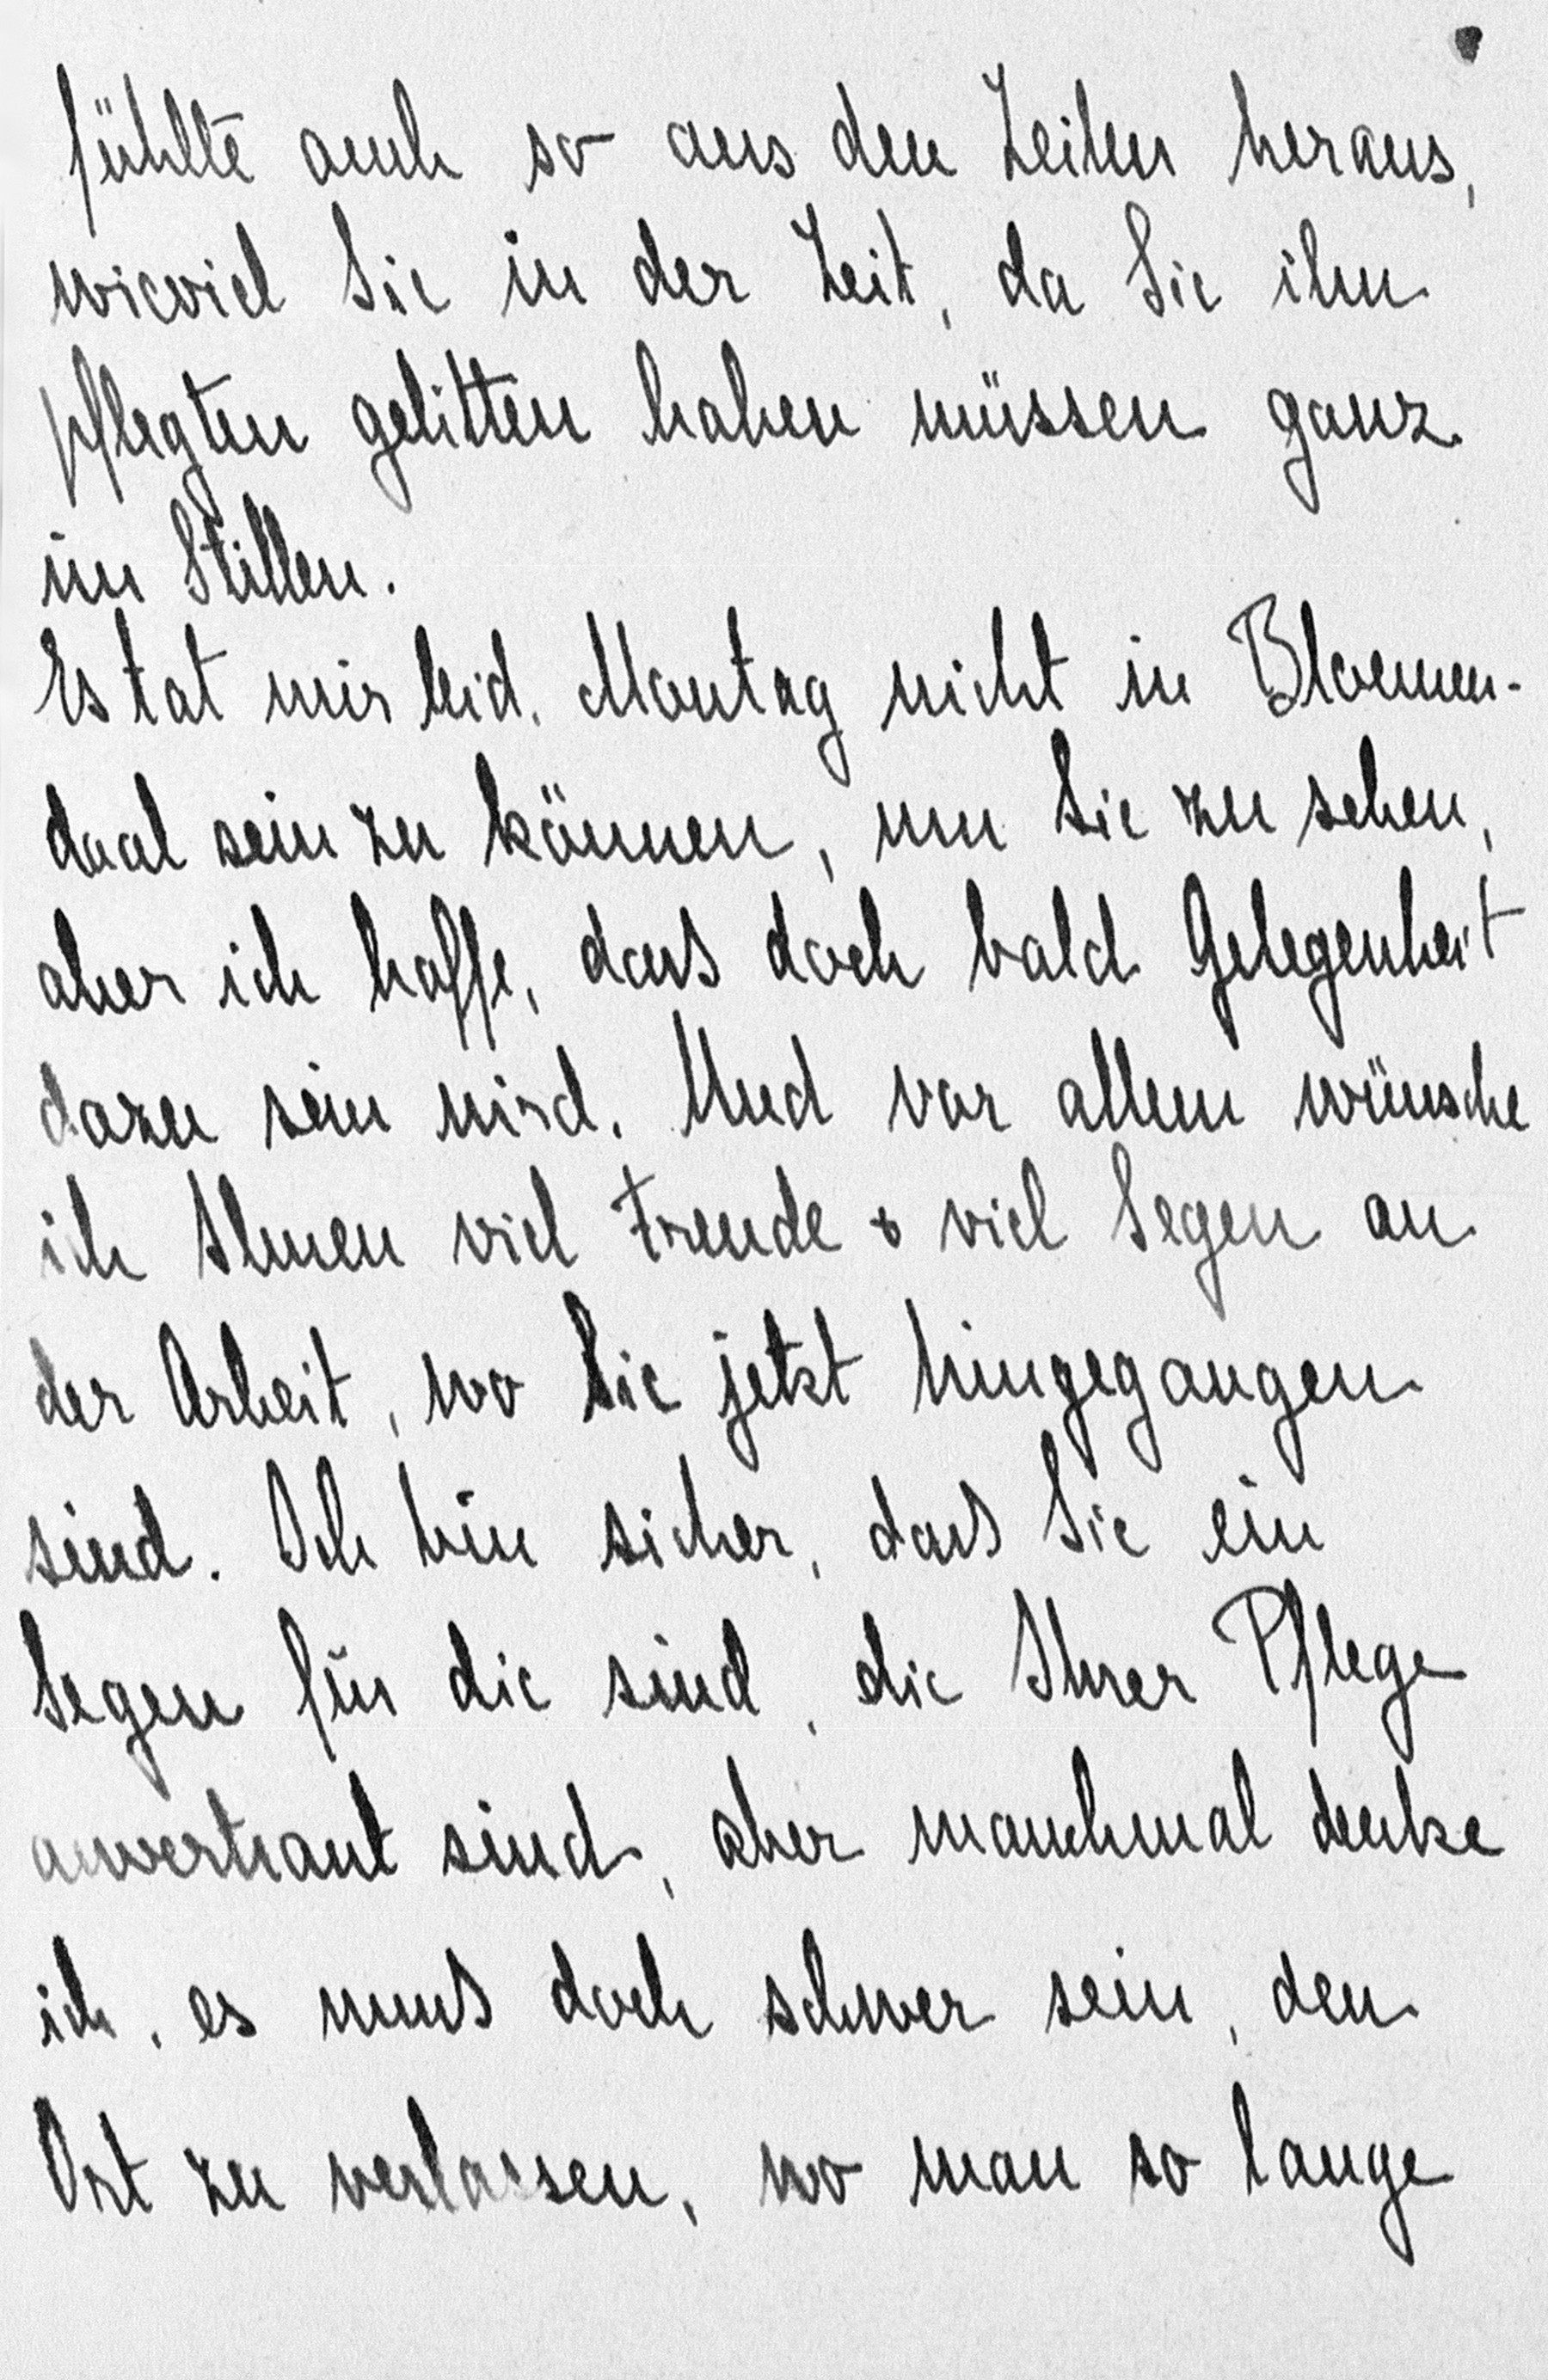 fühlte auch so aus den Zeilen heraus,
wieviel Sie in der Zeit, da Sie ihn
pflegten gelitten haben müssen ganz
im Stillen.
Es tat mir leid, Montag nicht in Bloemen-
daal sein zu können, um Sie zu sehen,
aber ich hoffe, dass doch bald Gelegenheit
dazu sein wird. Und vor allem wünsche
ich Ihnen viel Freude & viel Segen an
der Arbeit, wo Sie jetzt hingegangen
sind. Ich bin sicher, dass Sie ein
Segen für die sind, die Ihrer Pflege
anvertraut sind, aber manchmal denke
ich, es muss doch schwer sein, den
Ort zu verlassen, wo man so lange